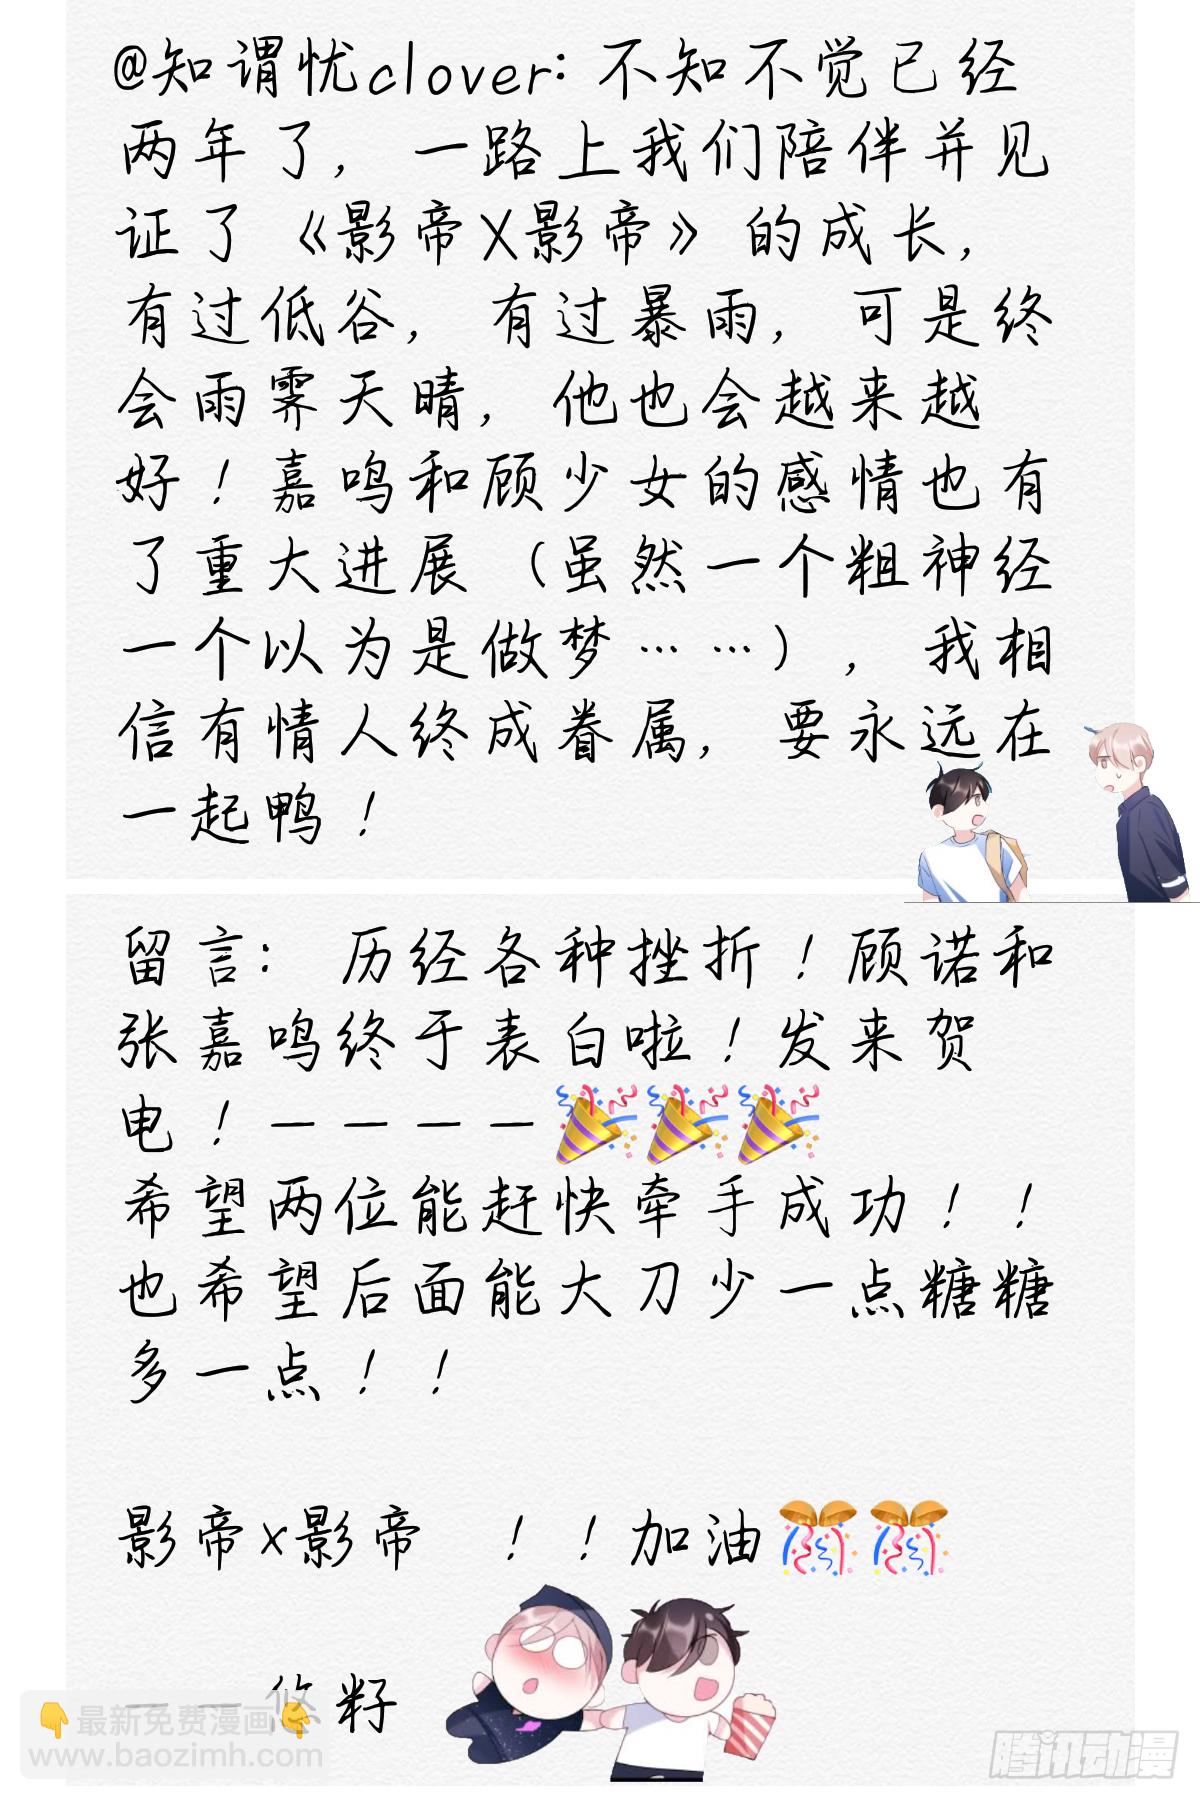 @知谓忧clover: 不知不觉已经
两年了，一路上我们陪伴并见
证了《影帝X影帝》的成长，
有过低谷，有过暴雨，可是终
会雨霁天晴，他也会越来越
好！嘉鸣和顾少女的感情也有
了重大进展（虽然一个粗神经
一个以为是做梦……），我相
信有情人终成眷属，要永远在
一起鸭！
留言：历经各种挫折！顾诺和
张嘉鸣终于表白啦！发来贺
电！————🎉🎉🎉
希望两位能赶快牵手成功！！
也希望后面能大刀少一点糖糖
多一点！！
影帝x影帝 ！！加油🎊🎊
——悠籽
👇最新免费漫画👇
www.baozimh.com
腾讯动漫